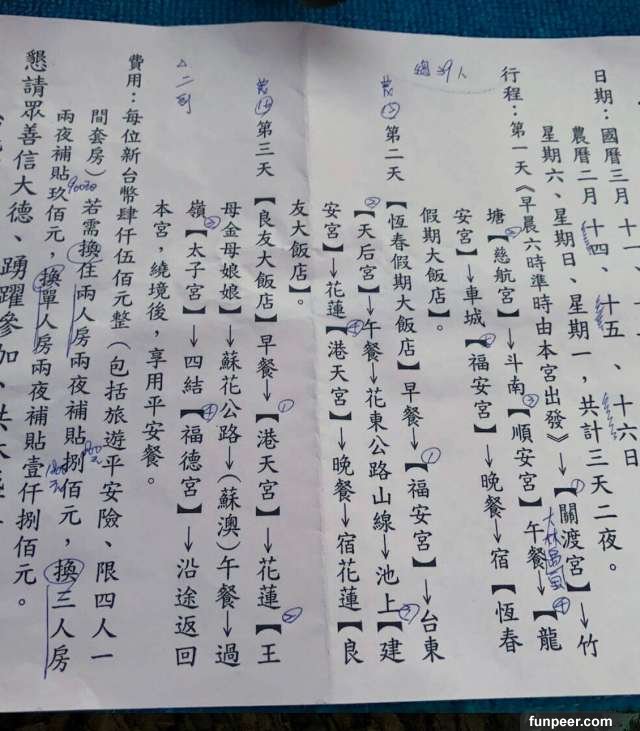 日期：國曆三月十一、
農曆二月十四、十五、十六日
星期六、星期日、星期一，共計三天二夜。
行程：第一天《早晨六時準時由本宮出發》→【關渡宮】→竹
塘【慈航宮】→斗南【順安宮】午餐→【龍
安宮】→車城【福安宮】→晚餐→宿【恆春
假期大飯店】。
第二天【恆春假期大飯店】早餐→【福安宮】→台東
【天后宮】→午餐→花東公路山線→池上【建
安宮】→花蓮【港天宮】→晚餐→宿花蓮【良
友大飯店】。
第三天【良友大飯店】早餐→【港天宮】→花蓮【王
母金母娘娘】→蘇花公路→(蘇澳)午餐→過
嶺【太子宮】→四結【福德宮】→沿途返回
本宮，繞境後，享用平安餐。
費用：每位新台幣肆仟伍佰元整（包括旅遊平安險、限四人一
間套房）若需換住兩人房兩夜補貼捌佰元，換三人房
兩夜補貼玖佰元，換單人房兩夜補貼壹仟捌佰元。
懇請眾善信大德、踴躍參加、共
funpeer.com